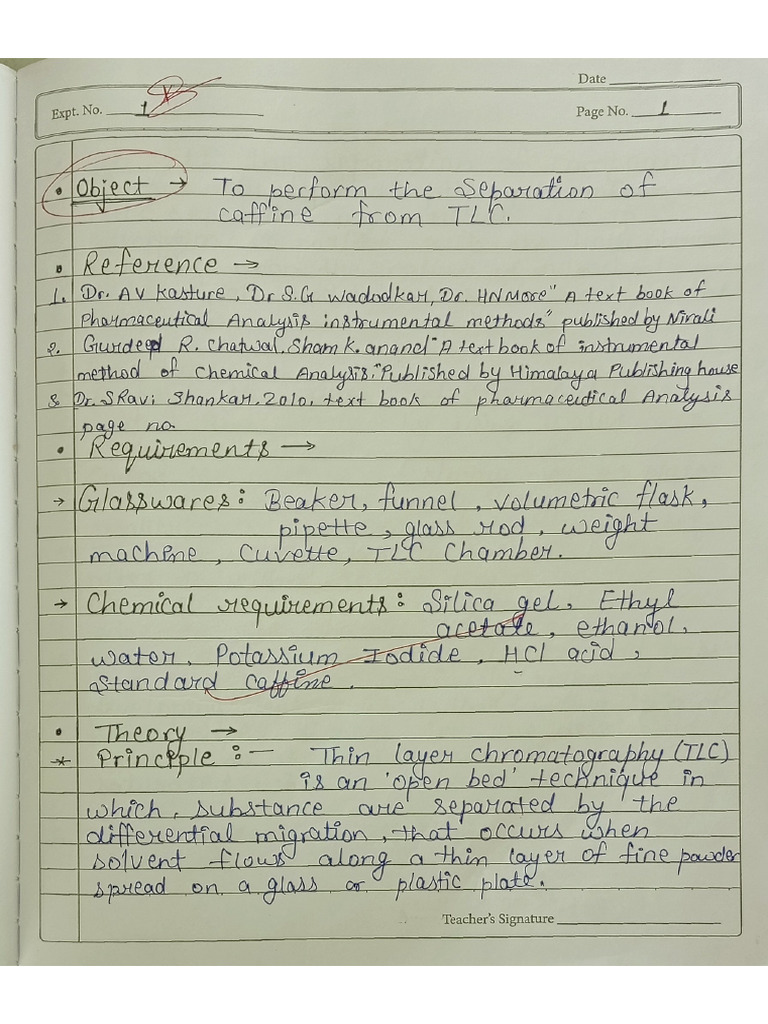 Date
Expt. No. 1
Page No. 1
• Object → To perform the Separation of
caffine from TLC.
• Reference →
1. Dr. AV Kasture, Dr S.G Wadodkar, Dr. HN More " A text book of
Pharmaceutical Analysis instrumental methods" published by Nirali
2. Gurdeep R. Chatwal, Sham K. anand "A text book of instrumental
method of Chemical Analysis." Published by Himalaya Publishing house
3. Dr. S Ravi Shankar, 2010, text book of pharmaceutical Analysis
page no.
• Requirements →
→ Glasswares: Beaker, funnel, volumetric flask,
pipette, glass rod, weight
machine, Cuvette, TLC Chamber.
→ Chemical requirements: Silica gel, Ethyl
acetate, ethanol,
water, Potassium Iodide, HCl acid,
Standard Caffine.
• Theory →
* Principle :- Thin layer chromatography (TLC)
is an 'open bed' technique in
which, substance are separated by the
differential migration, that occurs when
solvent flows along a thin layer of fine powder
spread on a glass or plastic plate.
Teacher's Signature